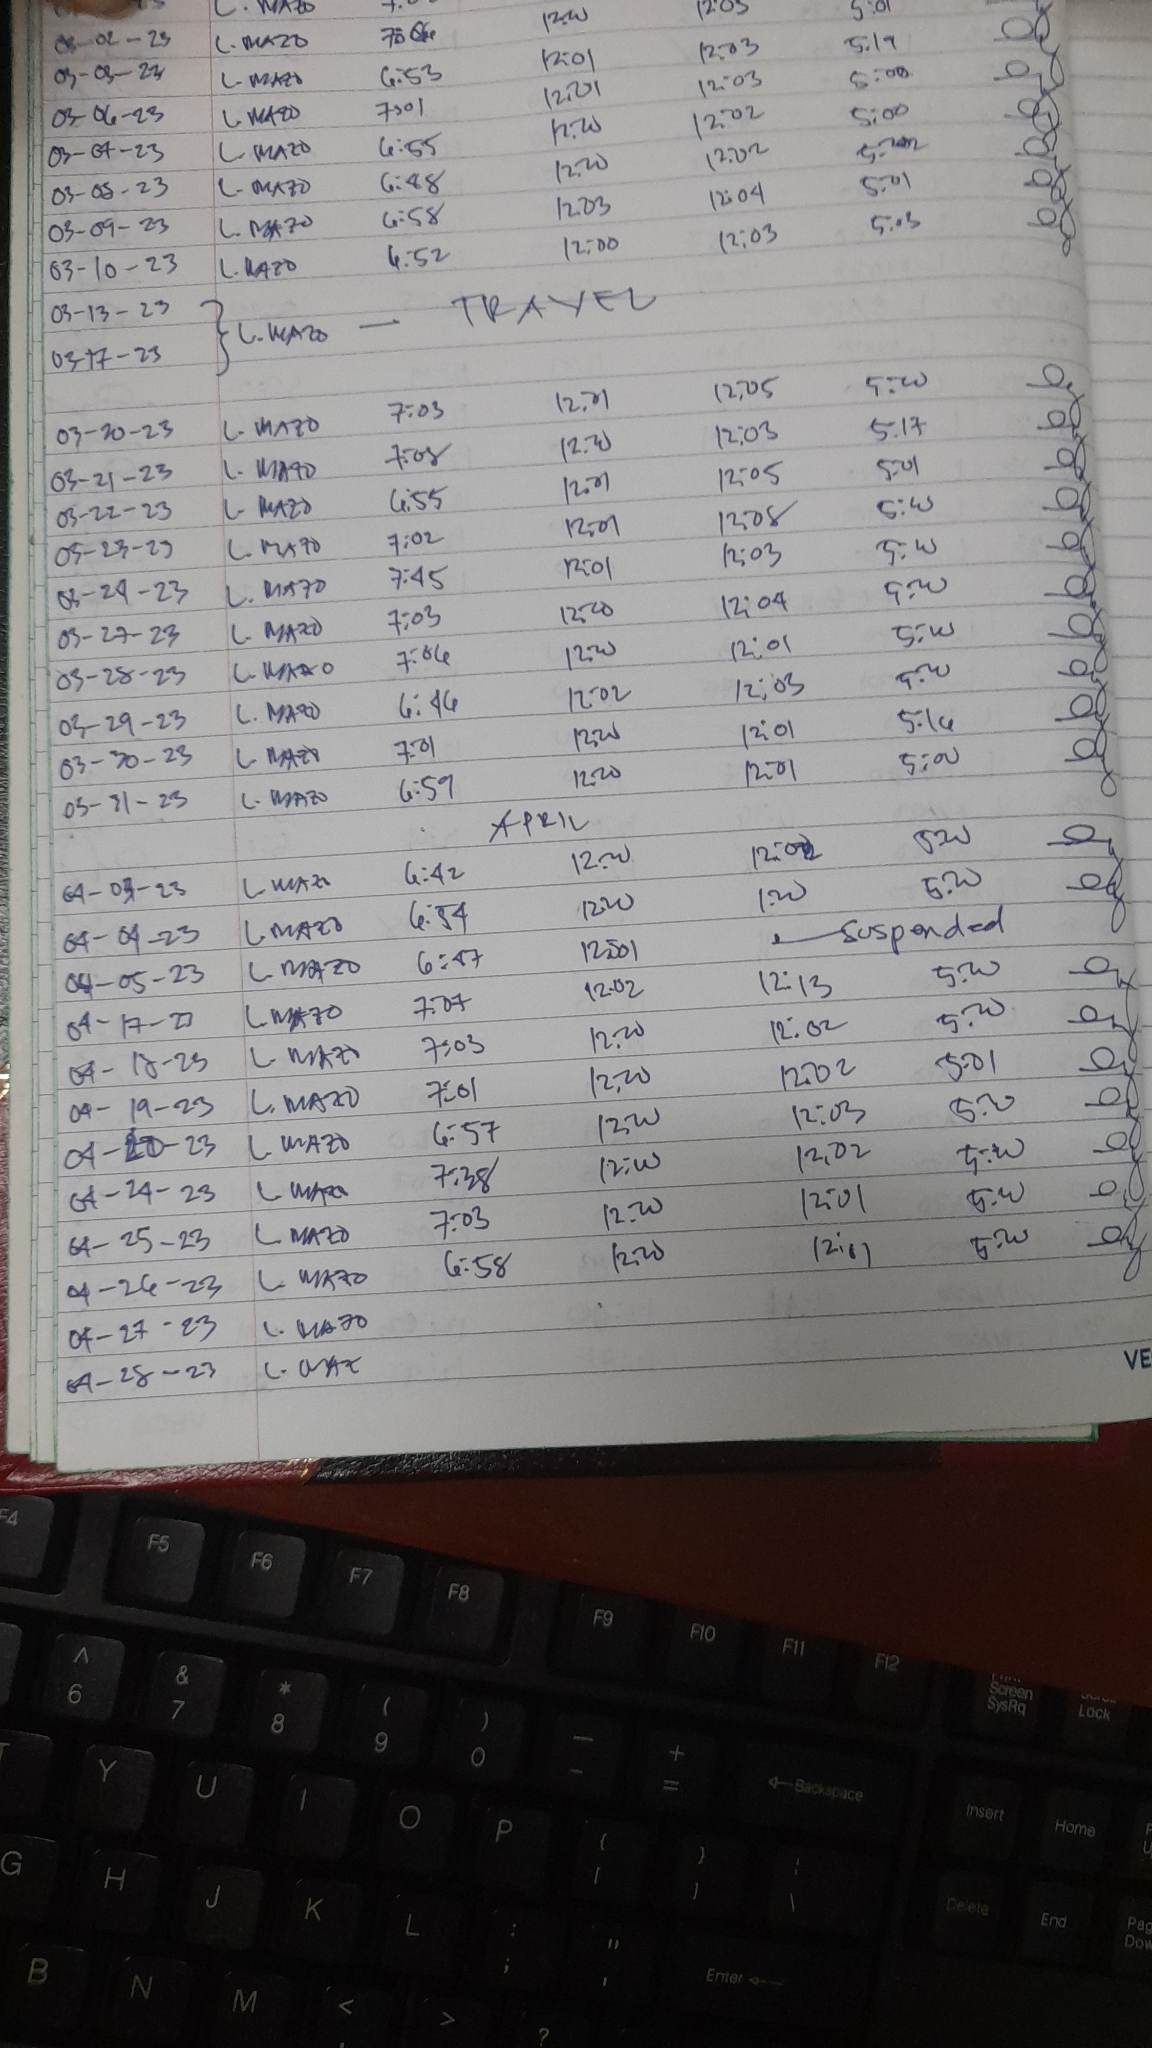 L. MAZO 12:00 12:03 5:01
03-02-23 L. MAZO 7:06 12:01 12:03 5:19
03-03-23 L. MAZO 6:53 12:01 12:03 5:00
03-06-23 L. MAZO 7:01 12:00 12:02 5:00
03-07-23 L. MAZO 6:55 12:00 12:02 5:02
03-08-23 L. MAZO 6:48 12:03 12:04 5:01
03-09-23 L. MAZO 6:58 12:00 12:03 5:03
03-10-23 L. MAZO 6:52
03-13-23
L. MAZO — TRAVEL
03-17-23
03-20-23 L. MAZO 7:03 12:01 12:05 5:00
03-21-23 L. MAZO 7:08 12:00 12:03 5:17
03-22-23 L. MAZO 6:55 12:01 12:05 5:01
03-23-23 L. MAZO 7:02 12:01 12:08 5:00
03-24-23 L. MAZO 7:45 12:01 12:03 5:00
03-27-23 L. MAZO 7:03 12:00 12:04 5:00
03-28-23 L. MAZO 7:06 12:00 12:01 5:00
03-29-23 L. MAZO 6:46 12:02 12:03 5:00
03-30-23 L. MAZO 7:01 12:00 12:01 5:16
03-31-23 L. MAZO 6:59 12:00 12:01 5:00
APRIL
04-03-23 L. MAZO 6:42 12:00 12:02 5:00
04-04-23 L. MAZO 6:54 12:00 1:00 5:00
04-05-23 L. MAZO 6:47 12:01 Suspended
04-17-23 L. MAZO 7:07 12:02 12:13 5:00
04-18-23 L. MAZO 7:03 12:00 12:02 5:00
04-19-23 L. MAZO 7:01 12:00 12:02 5:01
04-20-23 L. MAZO 6:57 12:00 12:03 5:00
04-24-23 L. MAZO 7:38 12:00 12:02 5:00
04-25-23 L. MAZO 7:03 12:00 12:01 5:00
04-26-23 L. MAZO 6:58 12:00 12:01 5:00
04-27-23 L. MAZO
04-28-23 L. MAZ
VE
F4 F5 F6 F7 F8 F9 F10 F11 F12 Screen SysRq Lock
^ 6 & 7 * 8 ( 9 ) 0 — - + = Backspace Insert Home
Y U I O P { [ } ] \ Delete End Pag Dow
G H J K L : ; " ' Enter
B N M < , > ?